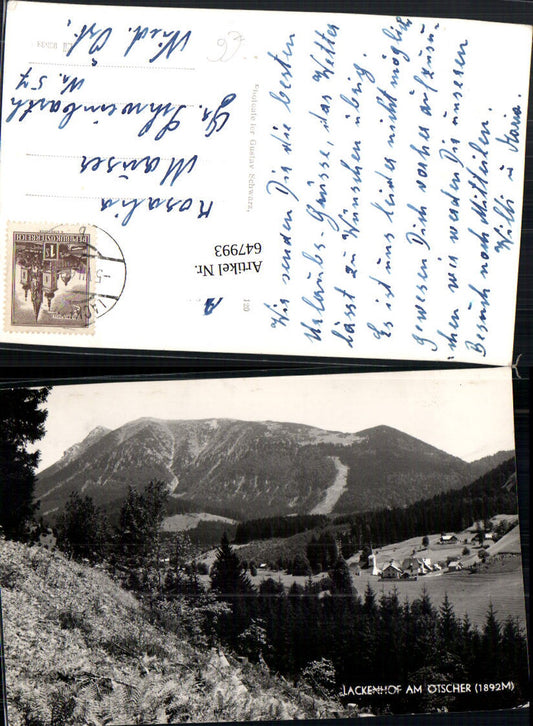 Wir senden Dir die besten
Urlaubs-Grüsse, das Wetter
lässt zu Wünschen übrig.
Es ist uns leider nicht möglich
gewesen Dich vorher aufzusu-
chen wir werden Dir unseren
Besuch noch Mitteilen.
Willi u. Maria.
Photokarte der Gustav Schwarz,
Artikel Nr.
647993
Rosalia
Mauser
Gr. Schweinbarth
Nr. 57
Nied. Öst.
REPUBLIK ÖSTERREICH
LACKENHOF AM ÖTSCHER (1892M)